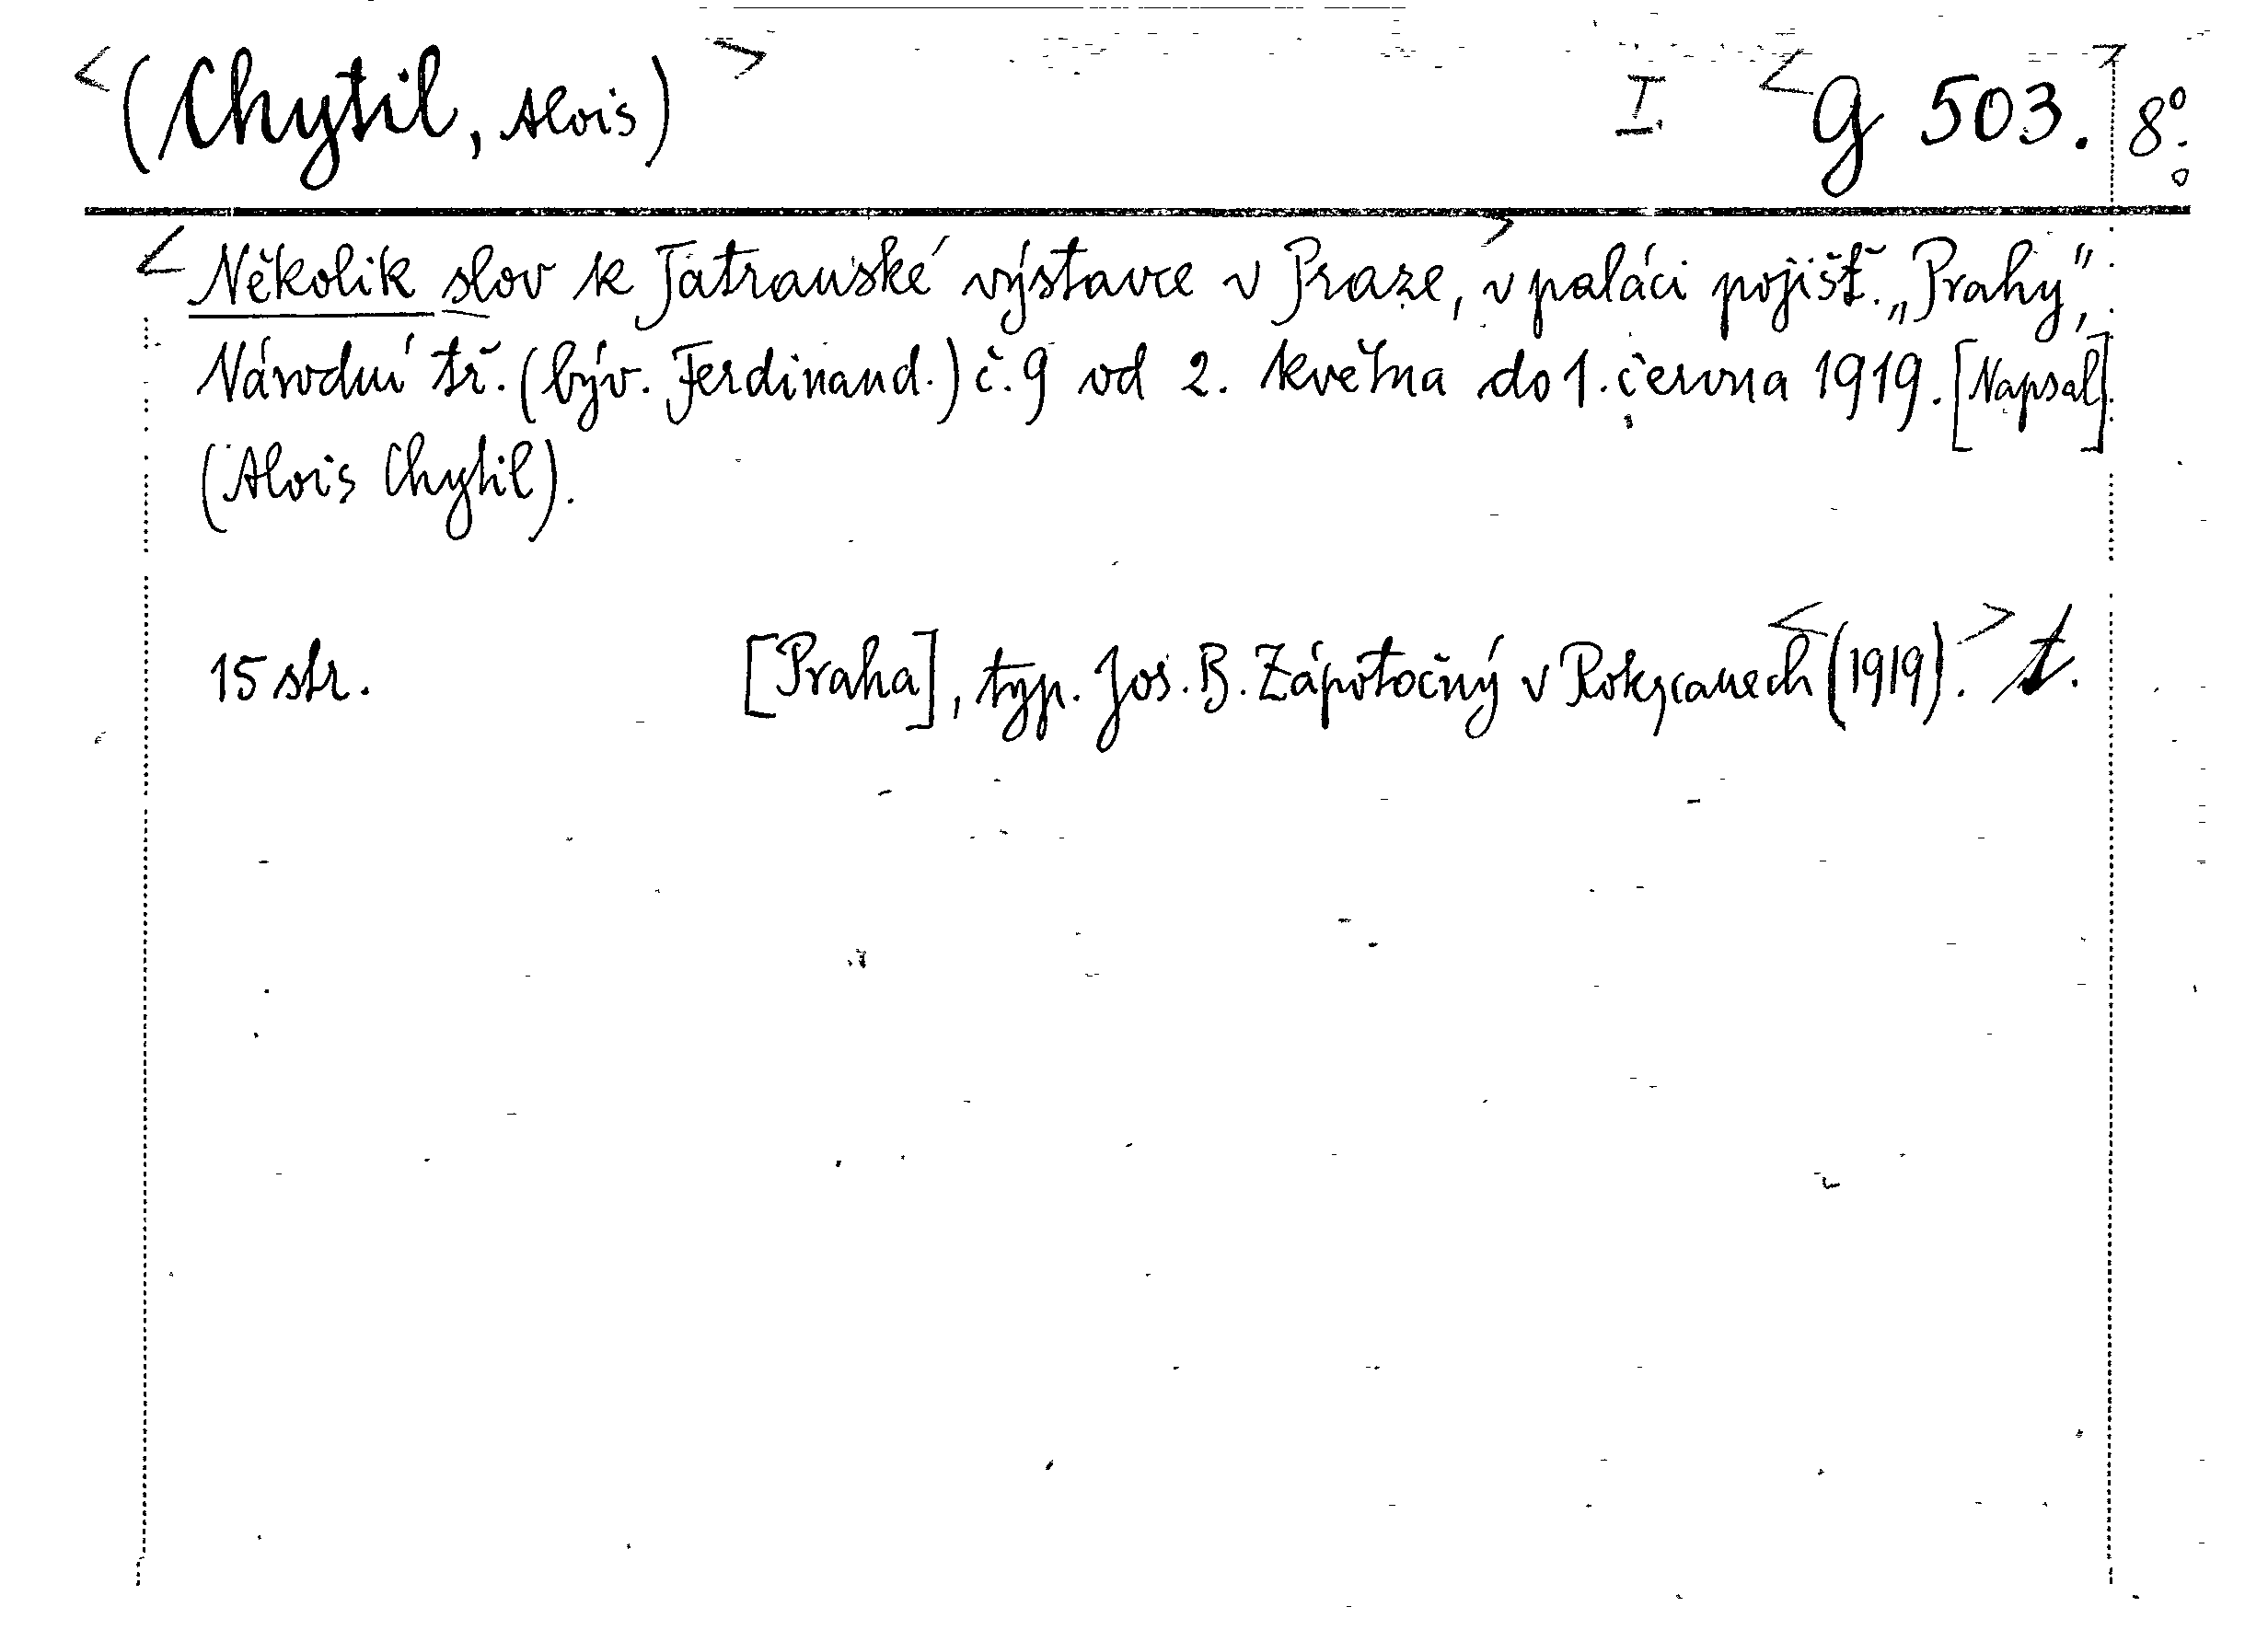 <(Chytil, Alois)> I. <G 503.> 8°.
<Několik slov k Tatranské výstavce v Praze,> v paláci pojišť. „Prahy“,
Národní tř. (býv. Ferdinand.) č. 9 od 2. května do 1. června 1919. [Napsal]
(Alois Chytil).
15 str. [Praha], typ. Jos. B. Zápotočný v Rokycanech <(1919).> t.